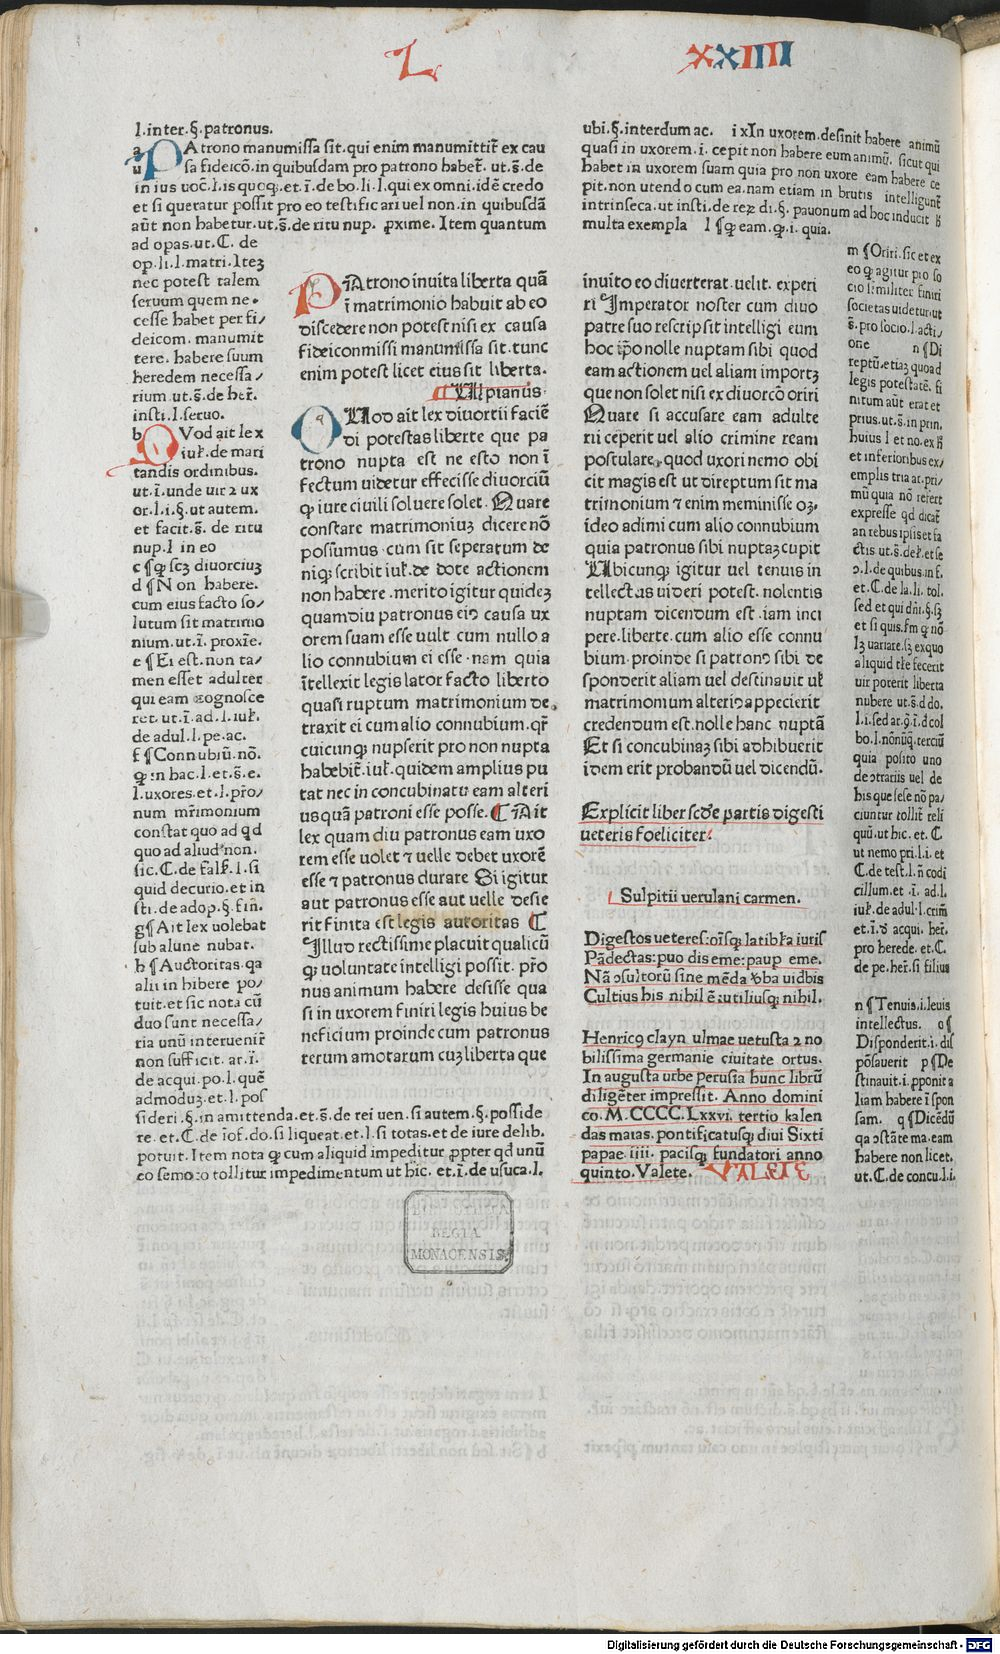 L XXIIII
l.inter.§.patronus.
PAtrono manumissa sit.qui enim manumittit̄ ex cau
sa fideicō.in quibusdam pro patrono habet̄. ut.s̄.de
in ius uoc̄.l.is quoq;.et.ī.de bo.li.l.qui ex omni.idē credo
et si queratur possit pro eo testificari uel non.in quibusdā
aūt non habetur.ut.s̄.de ritu nup. ꝓxime. Item quantum
ad opas.ut.C. de
op.li.l.matri.Iteȝ
nec potest talem
seruum quem ne
cesse habet per fi/
deicom. manumit
tere. habere suum
heredem necessa/
rium.ut.s̄.de her̄.
insti.l.seruo.
b QVod ait lex
iul̄.de mari
tandis ordinibus.
ut.ī.unde uir ⁊ ux
or.l.i.§.ut autem.
et facit.s̄. de ritu
nup.l in eo
c ¶ꝙ scȝ diuorciuȝ
d ¶Non habere.
cum eius facto so/
lutum sit matrimo
nium.ut.ī. proxīe.
e ¶Ei est.non ta/
men esset adulter
qui eam cognosce
ret.ut.ī.ad.l.iul̄.
de adul.l.pe.ac.
f ¶Connubiū.nō.
ꝙ in hac.l.et.s̄.e.
l.uxores.et.l.pr̄o/
num mr̄imonium
constat quo ad qd
quo ad aliud non.
sic.C.de falf.l.si
quid decurio.et in
sti.de adop.§.fin.
g¶Ait lex uolebat
sub alune nubat.
h ¶Auctoritas.qa
alii in hibere po/
tuit.et sic nota cū
duo sunt necessa/
ria unū interuenir̄
non sufficit. ar.ī.
de acqui.po.l.quē
admoduȝ.et.l.pos
sideri.§.in amittenda.et.s̄.de rei uen.si autem.§.posside
re.et.C.de iof.do.si liqueat.et.l.si totas.et de iure delib.
potuit.Item nota ꝙ cum aliquid impeditur ꝓpter qd unū
eo semoto tollitur impedimentum ut hic. et.ī.de usuca.l.
PAtrono inuita liberta quā
ī matrimonio habuit ab eo
discedere non potest nisi ex causa
fideiconmissi manumissa sit.tunc
enim potest licet eius sit liberta.
Vlpianus
QVod ait lex diuortii faciē
di potestas liberte que pa
trono nupta est ne esto non ī
fectum uidetur effecisse diuorciū
ꝙ iure ciuili soluere solet. Quare
constare matrimoniuȝ dicere nō
possumus cum sit seperatum de
niq; scribit iul̄.de dote actionem
non habere.merito igitur quideȝ
quamdiu patronus eiꝰ causa ux
orem suam esse uult cum nullo a
lio connubium ei esse.nam quia
ītellexit legis lator facto liberto
quasi ruptum matrimonium de
traxit ei cum alio connubium.qr̄
cuicunq; nupserit pro non nupta
habebit̄.iul̄.quidem amplius pu
tat nec in concubinatu eam alteri
us quā patroni esse posse. C Ait
lex quam diu patronus eam uxo
rem esse uolet ⁊ uelle debet uxorē
esse ⁊ patronus durare Si igitur
aut patronus esse aut uelle desie
rit finita est legis autoritas C
Illud rectissime placuit qualicū
q; uoluntate intelligi possit.pr̄o
nus animum habere desisse qua
si in uxorem finiri legis huius be
neficium proinde cum patronus
rerum amotarum cuȝ liberta que
ubi.§.interdum ac. i xIn uxorem.desinit habere animū
quasi in uxorem.i.cepit non habere eum animū. sicut qui
habet in uxorem suam quia pro non uxore eam habere ce
pit.non utendo cum ea.nam etiam in brutis intelligunt̄
intrinseca.ut insti.de reȝ di.§.pauonum ad hoc inducit ɧ
multa exempla l ¶ꝙ eam.ꝙ.i.quia.
inuito eo diuerterat.uelit.experi
ri Imperator noster cum diuo
patre suo rescripsit intelligi eum
hoc ip̄o nolle nuptam sibi quod
eam actionem uel aliam importȝ
que non solet nisi ex diuorcō oriri
Quare si accusare eam adulte
rii ceperit uel alio crimine ream
postulare.quod uxori nemo obi
cit magis est ut direptum sit ma
trimonium ⁊ enim meminisse oȝ.
ideo adimi cum alio connubium
quia patronus sibi nuptaȝ cupit
Vbicunq; igitur uel tenuis in
tellectus uideri potest. nolentis
nuptam dicendum est.iam inci
pere.liberte.cum alio esse connu
bium.proinde si patronꝰ sibi de
sponderit aliam uel destinauit ul̄
matrimonium alteriꝰ appecierit
credendum est.nolle hanc nuptā
Et si concubinaȝ sibi adhibuerit
idem erit probandū uel dicendū.
Explicit liber scd̄e partis digesti
ueteris foeliciter.
Sulpitii uerulani carmen.
Digestos ueteres:oīsq; latibl̄a iuris
Pādectas:puo dis eme:paup eme.
Nā ↄsultorū sine mēda ꝟba uidbis
Cultius his nihil ē:utiliusq; nihil.
Henricꝰ clayn ulmae uetusta ⁊ no
bilissima germanie ciuitate ortus.
In augusta urbe perusia hunc librū
diligēter impressit. Anno domini
co.M.CCCC.Lxxvi.tertio kalen
das maias.pontificatusq; diui Sixti
papae.iiii.pacisq; fundatori anno
quinto.Valete. VALETE
m ¶Oriri.sic et ex
eo ꝙ agitur pro so
cio similiter finiri
societas uidetur.ut
s̄.pro socio.l.acti/
one n ¶Di
reptū.etiaȝ quoad
legis potestatē. fi
nitum aūt erat et
prius.ut.s̄.in prin.
huius l et no.ex ɧ
et inferioribus ex/
emplis tria ar.pri/
mū quia nō refert
expresse qd dicat̄
an rebus ipsis et fa
ctis ut.s̄.de l̄.et se
ↄ.l.de quibus.in f.
et.C.de la.li.tol.
sed et qui dn̄i.§.sȝ
et si quis.fm ꝙ nō
lȝ uariare.sȝ ex quo
aliquid tr̄e fecerit
uir poterit liberta
nubere ut.s̄.d do.
l.i.sed ar.ꝯ.ī.d col
bo.l.nōnūq.terciū
quia posito uno
de ↄtrariis uel de
his que sese nō pa/
ciuntur tollit̄ reli
quū.ut hic.et.C.
ut nemo pri.l.i.et
C.de test.l.n̄ codi
cillum.et.ī. ad.l.
iul̄.de adul.l.crim̄
et.ī.ꝺ acqui. her̄.
pro herede.et.C.
de pe.her̄.si filius
n ¶Tenuis.i.leuis
intellectus. o¶
Disponderit.i.dis
pōsauerit p ¶De
stinauit.i.ꝓponit a
liam habere ī spon
sam. q ¶Dicēdū
qa ↄstāte ma.eam
habere non licet.
ut.C.de concu.l.i.
REGIA
MONACENSIS.
Digitalisierung gefördert durch die Deutsche Forschungsgemeinschaft - DFG